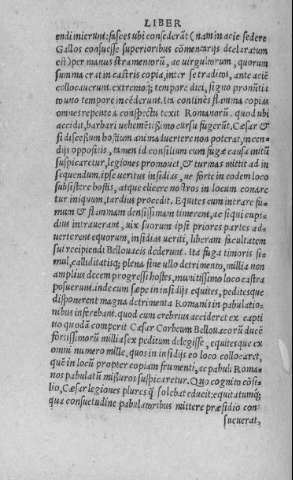 LIBER
endi inierunt: fasces ubi consederāt (nam in acie sedere
Gallos consuesse superioribus cōmentarijs declaratum
est) per manus stramentorū, ac virgultorum, quorum
summa erat in castris copia, inter se traditos, ante aciē
collocauerunt. extremoq; tempore diei, signo pronūtia
to uno tempore incēderunt. Ita continēs flamma copias
omnes repente à conspectu texit Romanorū. quod ubi
accidit, barbari uehemētissimo cursu fugerūt. Cæsar &
si discessum hostium animaduertere non poterat, incen-
dijs oppositis, tamen id consilium cum fugæ causa initū
suspicaretur, legiones promouet, & turmas mittit ad in
sequendum. ipse ueritus insidias, ne forte in eodem loco
subsisteret hostis, atque elicere nostros in locum conare
tur iniquum, tardius procedit. Equites cum intrare fu-
mum & flammam densissimam timerent, ac siqui cupi-
dius intrauerant, uix suorum ipsi priores partes ad-
uerterent equorum, insidias ueriti, liberam facultatem
sui recipiendi Bellouacis dederunt. Ita fuga timoris si-
mul, calliditatisq; plena sine ullo detrimento, millia non
amplius decem progressi hostes, munitissimo loco castra
posuerunt. inde cum sæpe in insidijs equites, peditesque
disponerent magna detrimenta Romanis in pabulatio-
nibus inferebant. quod cum crebrius accideret ex capti
tiuo quodā comperit Cæsar Corbeum Bellouacorū ducē
fortissimorū millia sex peditum delegisse, equitesque ex
omni numero mille, quos in insidijs eo loco collocaret,
quē in locū propter copiam frumenti, ac pabuli Roma-
nos pabulatū missuros suspicaretur. Quo cognito cōsi-
lio, Cæsar legiones plures q̃ solebat educit: equitatumq;
qua consuetudine pabulatoribus mittere præsidio con-
sueuerat,